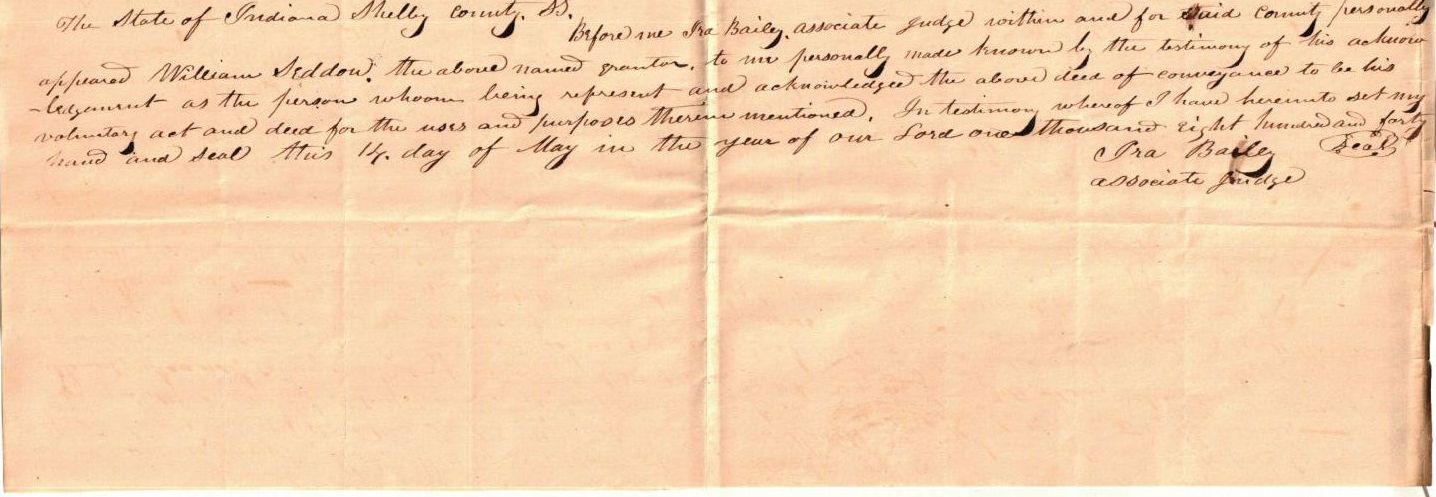 The State of Indiana Shelby County. SS.
Before me Ira Bailey, associate Judge within and for said County personally
appeared William Seddon, the above named grantor, to me personally made known by the testimony of his acknow
-ledgment as the person whoom being represent and acknowledged the above deed of conveyance to be his
voluntary act and deed for the uses and purposes therein mentioned. In testimony whereof I have hereunto set my
hand and seal this 14. day of May in the year of our Lord one thousand eight hundred and forty
Ira Bailey Seal
associate Judge